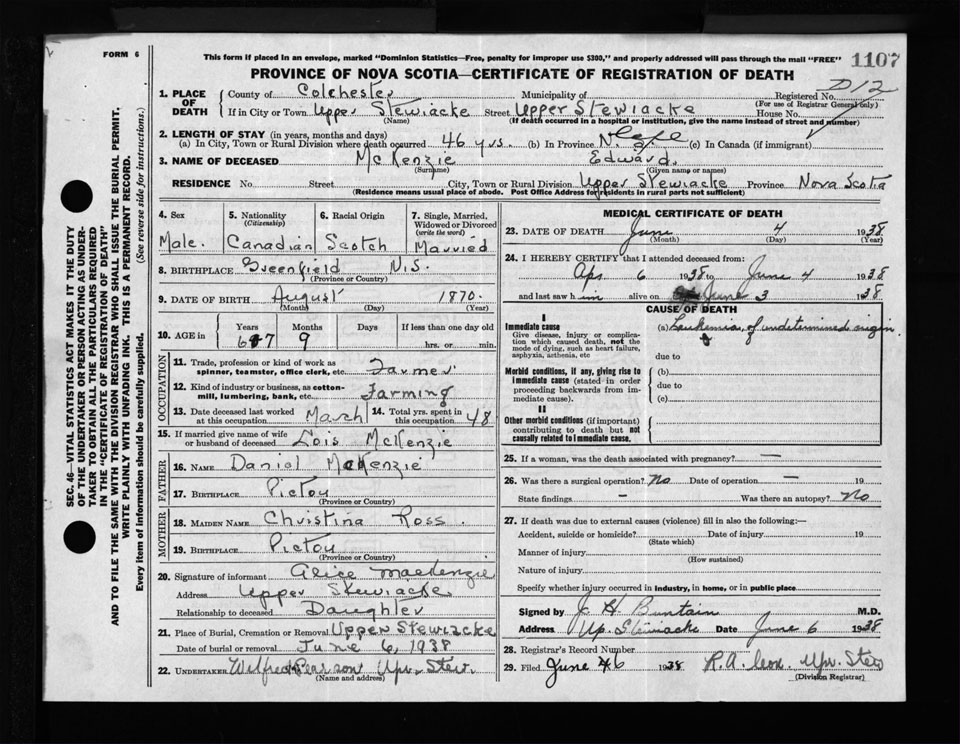 FORM 6
This form if placed in an envelope, marked "Dominion Statistics—Free, penalty for improper use $300," and properly addressed will pass through the mail "FREE"
1107
PROVINCE OF NOVA SCOTIA—CERTIFICATE OF REGISTRATION OF DEATH
1. PLACE OF DEATH
County of Colchester Municipality of Registered No. D12
(For use of Registrar General only)
If in City or Town Upper Stewiacke Street Upper Stewiacke House No.
(Name) (If death occurred in a hospital or institution, give the name instead of street and number)
2. LENGTH OF STAY (in years, months and days)
(a) In City, Town or Rural Division where death occurred 46 yrs. (b) In Province Life (c) In Canada (if immigrant)
3. NAME OF DECEASED McKenzie Edward.
(Surname) (Given name or names)
RESIDENCE No. Street City, Town or Rural Division Upper Stewiacke Province Nova Scotia
(Residence means usual place of abode. Post Office Address for residents in rural parts not sufficient)
4. Sex
Male.
5. Nationality
(Citizenship)
Canadian
6. Racial Origin
Scotch
7. Single, Married, Widowed or Divorced
(write the word)
Married
8. BIRTHPLACE Greenfield N.S.
(Province or Country)
9. DATE OF BIRTH August 1870.
(Month) (Day) (Year)
10. AGE in
Years Months Days If less than one day old
67 9 hrs. or min.
OCCUPATION
11. Trade, profession or kind of work as spinner, teamster, office clerk, etc. Farmer
12. Kind of industry or business, as cotton-mill, lumbering, bank, etc. Farming
13. Date deceased last worked at this occupation March
14. Total yrs. spent in this occupation 48
15. If married give name of wife or husband of deceased Lois McKenzie
FATHER
16. NAME Daniel McKenzie
17. BIRTHPLACE Pictou
(Province or Country)
MOTHER
18. MAIDEN NAME Christina Ross.
19. BIRTHPLACE Pictou
(Province or Country)
20. Signature of informant Alice MacKenzie
Address Upper Stewiacke
Relationship to deceased Daughter
21. Place of Burial, Cremation or Removal Upper Stewiacke
Date of burial or removal June 6, 1938
22. UNDERTAKER Wilfred Pearson Upr. Stew.
(Name and address)
MEDICAL CERTIFICATE OF DEATH
23. DATE OF DEATH June 4 1938
(Month) (Day) (Year)
24. I HEREBY CERTIFY that I attended deceased from:
Apr. 6 1938 to June 4 1938
and last saw him alive on June 3 1938
CAUSE OF DEATH
I
Immediate cause
Give disease, injury or complication which caused death, not the mode of dying, such as heart failure, asphyxia, asthenia, etc
(a) Leukemia, of undetermined origin.
due to
Morbid conditions, if any, giving rise to immediate cause (stated in order proceeding backwards from immediate cause).
(b)
due to
(c)
II
Other morbid conditions (if important) contributing to death but not causally related to immediate cause.
25. If a woman, was the death associated with pregnancy? —
26. Was there a surgical operation? No Date of operation — 19
State findings - Was there an autopsy? No
27. If death was due to external causes (violence) fill in also the following:—
Accident, suicide or homicide? Date of injury 19
(State which)
Manner of injury
(How sustained)
Nature of injury
Specify whether injury occurred in industry, in home, or in public place
Signed by J. H. Buntain M.D.
Address Up. Stewiacke Date June 6 1938
28. Registrar's Record Number
29. Filed June 6 1938 R.A. Upr. Stew
(Division Registrar)
SEC. 46—VITAL STATISTICS ACT MAKES IT THE DUTY
OF THE UNDERTAKER OR PERSON ACTING AS UNDERTAKER
TO OBTAIN ALL THE PARTICULARS REQUIRED
IN THE "CERTIFICATE OF REGISTRATION OF DEATH"
AND TO FILE THE SAME WITH THE DIVISION REGISTRAR WHO SHALL ISSUE THE BURIAL PERMIT.
WRITE PLAINLY WITH UNFADING INK. THIS IS A PERMANENT RECORD.
Every item of information should be carefully supplied. (See reverse side for instructions.)